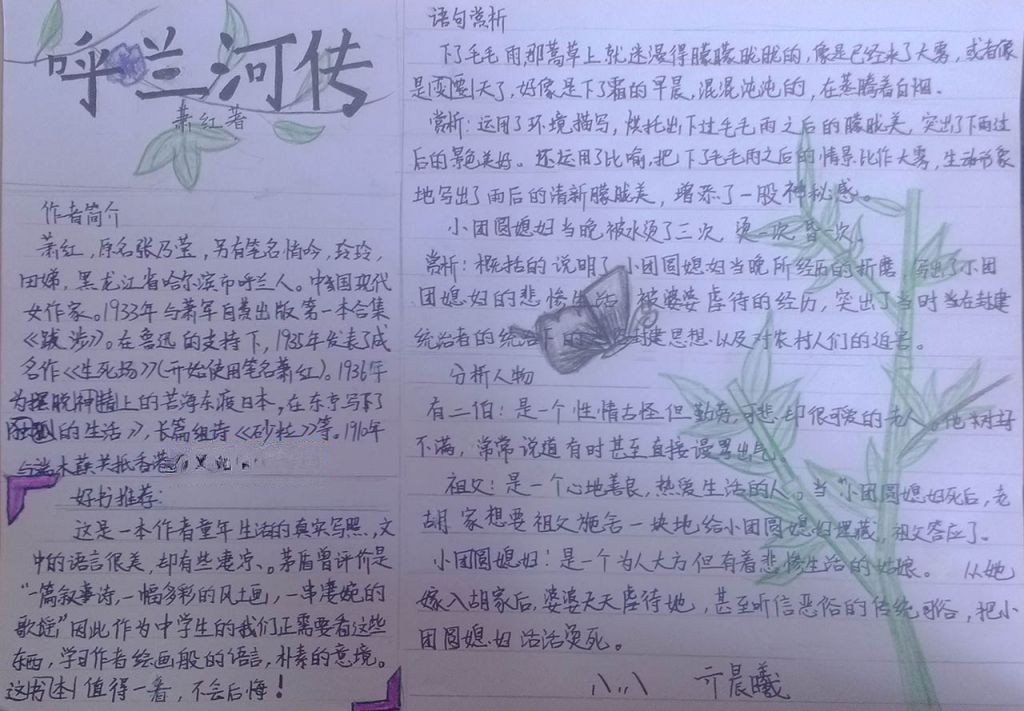 呼兰河传
萧红著
作者简介
萧红,原名张乃莹,另有笔名悄吟,玲玲,
田娣,黑龙江省哈尔滨市呼兰人。中国现代
女作家。1933年与萧军自费出版第一本合集
《跋涉》。在鲁迅的支持下,1935年发表了成
名作《生死场》(开始使用笔名萧红)。1936年
为摆脱精神上的苦海东渡日本,在东京写下了
的生活》,长篇组诗《砂粒》等。1940年
与端木蕻共抵香港
好书推荐:
这是一本作者童年生活的真实写照,文
中的语言很美,却有些凄凉、。茅盾曾评价是
“一篇叙事诗,一幅多彩的风土画,一串凄婉的
歌谣”因此作为中学生的我们正需要看这些
东西,学习作者绘画般的语言,朴素的意境。
这书(本)值得一看,不会后悔!
语句赏析
下了毛毛雨那蒿草上就迷漫得朦朦胧胧的,像是已经来了大雾,或者像
是要变天了,好像是下了霜的早晨,混混沌沌的,在蒸腾着白烟。
赏析:运用了环境描写,烘托出下过毛毛雨之后的朦胧美,突出了下雨过
后的景色美好。还运用了比喻,把下了毛毛雨之后的情景比作大雾,生动形象
地写出了雨后的清新朦胧美,增添了一股神秘感。
小团圆媳妇当晚被水烫了三次,烫一次,昏一次。
赏析:概括的说明了小团圆媳妇当晚所经历的折磨,写出了小团
团媳妇的悲惨生活,被婆婆虐待的经历,突出了当时当在封建
统治者的统治下的封建思想以及对农村人们的迫害。
分析人物
有二伯:是一个性情古怪但勤劳,可悲却很可爱的老人。他对
不满,常常说道有时甚至直接谩骂出气
祖父:是一个心地善良,热爱生活的人。当“小团圆媳妇死后,老
胡家想要祖父施舍一块地给小团圆媳妇埋藏,祖父答应了。
小团圆媳妇:是一个为人大方但有着悲惨生活的姑娘。从她
嫁入胡家后,婆婆天天虐待她,甚至听信恶俗的传统习俗,把小
团圆媳妇活活烫死。
晨曦